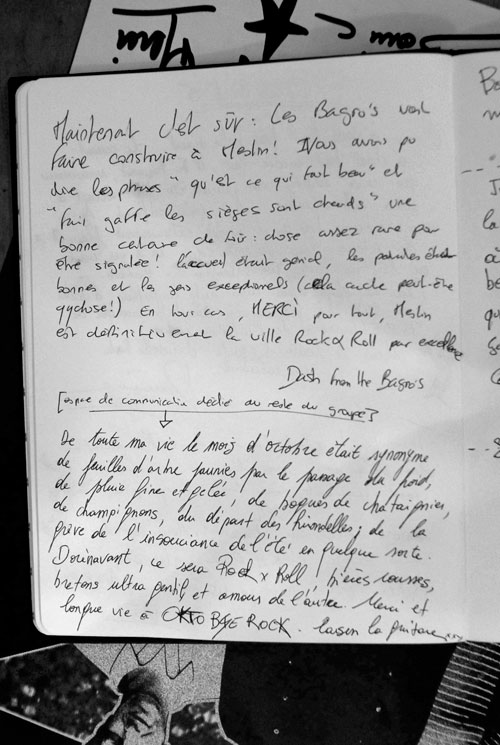 Maintenat c'est sûr : Les Bagro's vont
faire construire à Meslin ! Nous avons pu
dire les phrases " qu'est ce qui fait beau " et
" Fais gaffe les sièges sont chauds " une
bonne centaine de fois : chose assez rare pour
être signalée ! L'accueil était genial, les patates était
bonnes et les gens exceptionels (cela cache peut-être
qqchose !) En tous cas, MERCI pour tout, Meslin
est définitivement la ville Rock & Roll par excellence
Dash from the Bagro's
[espace de communication dédié au reste du groupe]
De toute ma vie le mois d'octobre était synonyme
de feuilles d'arbre jaunies par le passage du froid,
de pluie fine et gelée, de bogues de chataignier,
de champignons, du départ des hirondelles ; de la
grève de l'insouciance de l'été en quelque sorte.
Dorénavant, ce sera Rock x Roll, bières rousses,
bretons ultra gentils et amour de l'autre. Merci et
longue vie à OKTO BRE ROCK. la guitare...